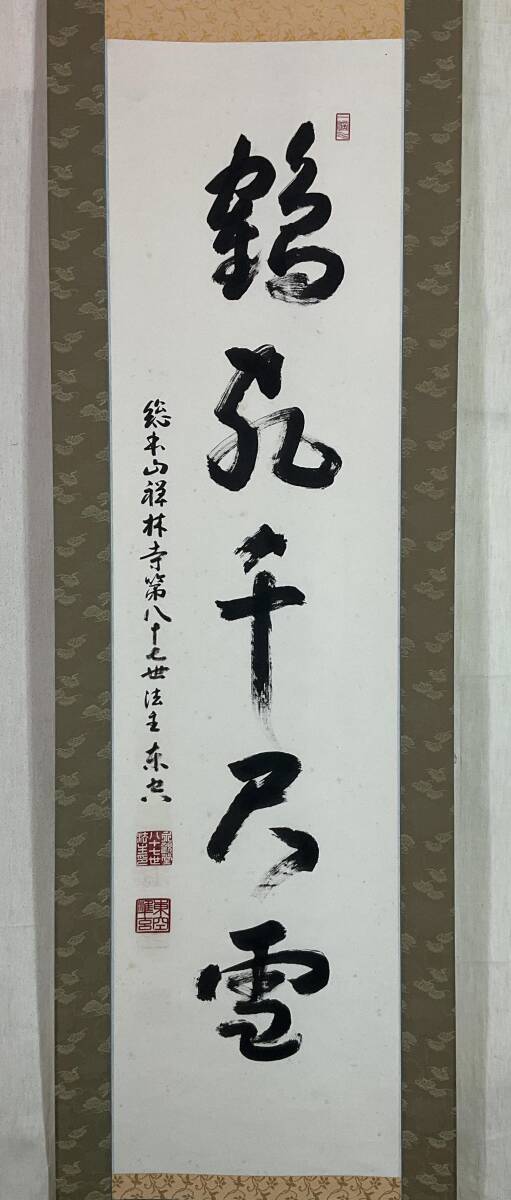 鶴飛千尺雪
総本山禅林寺第八十七世法主東空